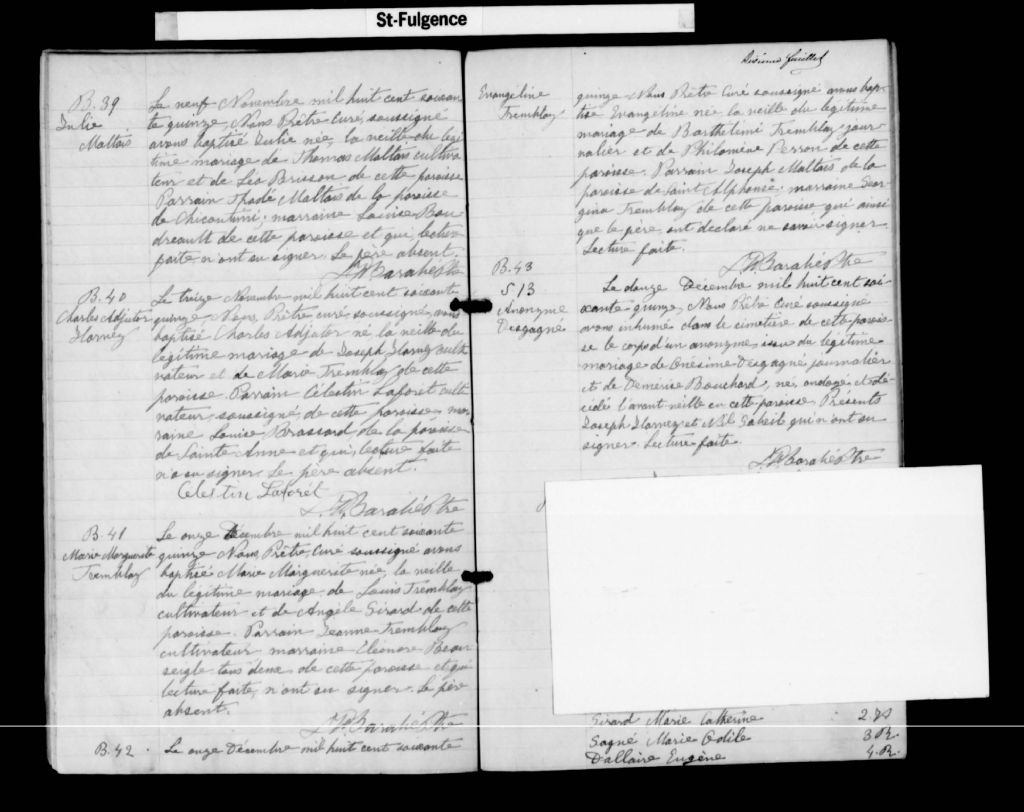 St-Fulgence
B. 39
Julie
Maltais
Le neuf Novembre mil huit cent soixan
te quinze, Nous Prêtre Curé, soussigné
avons baptisé Julie née, la veille du légi
time mariage de Thomas Maltais cultiva
teur et de Léo Brisson de cette paroisse
Parrain Maltais de la paroisse
de Chicoutimi; marraine Louise Bou
dreault de cette paroisse et qui, lecture
faite, n'ont su signer. Le père absent.
B. 40
Charles Adjutor
Harvey
Le treize Novembre mil huit cent soixante
quinze, Nous, Prêtre curé, soussigné, avons
baptisé Charles Adjutor né la veille du
légitime mariage de Joseph Harvey culti
vateur et de Marie Tremblay de cette
paroisse. Parrain Célestin Laforêt culti
vateur, soussigné de cette paroisse, mar
raine Louise Brassard, de la paroisse
de Sainte Anne et qui, lecture faite
n'a su signer. Le père absent.
Celestin Laforêt
B. 41
Marie Marguerite
Tremblay
Le onze Décembre mil huit cent soixante
quinze Nous, Prêtre, Curé soussigné avons
baptisé Marie Marguerite née, la veille
du légitime mariage de Louis Tremblay
cultivateur et de Angèle Girard de cette
paroisse. Parrain Tremblay
cultivateur marraine Eléonore
tous deux de cette paroisse et qui
lecture faite, n'ont su signer. Le père
absent.
B. 42
Le onze Décembre mil huit cent soixante
feuillet
Evangéline
Tremblay
quinze, Nous Prêtre Curé soussigné avons bap-
tisé Evangéline née, la veille du légitime
mariage de Barthélimi Tremblay jour-
nalier et de Philomène Perron de cette
paroisse. Parrain Joseph Maltais de la
paroisse de Saint Alphonse; marraine Geor-
gina Tremblay de cette paroisse qui ainsi
que le père, ont déclaré ne savoir signer
Lecture faite.
B. 43
S 13
Anonyme
Desgagné
Le douze Décembre mil huit cent soi-
xante quinze, Nous Prêtre Curé soussigné
avons inhumé dans le cimetière de cette parois-
se le corps d'un anonyme, issu du légitime
mariage de Onésime Desgagné, journalier
et de Démérise Bouchard, né, ondoyé et dé-
cédé l'avant veille en cette paroisse. Présents
Joseph Harvey et qui n'ont su
signer. Lecture faite.
Girard Marie Catherine
Gagné Marie Odile 3 R.
Dallaire Eugène 4. R.